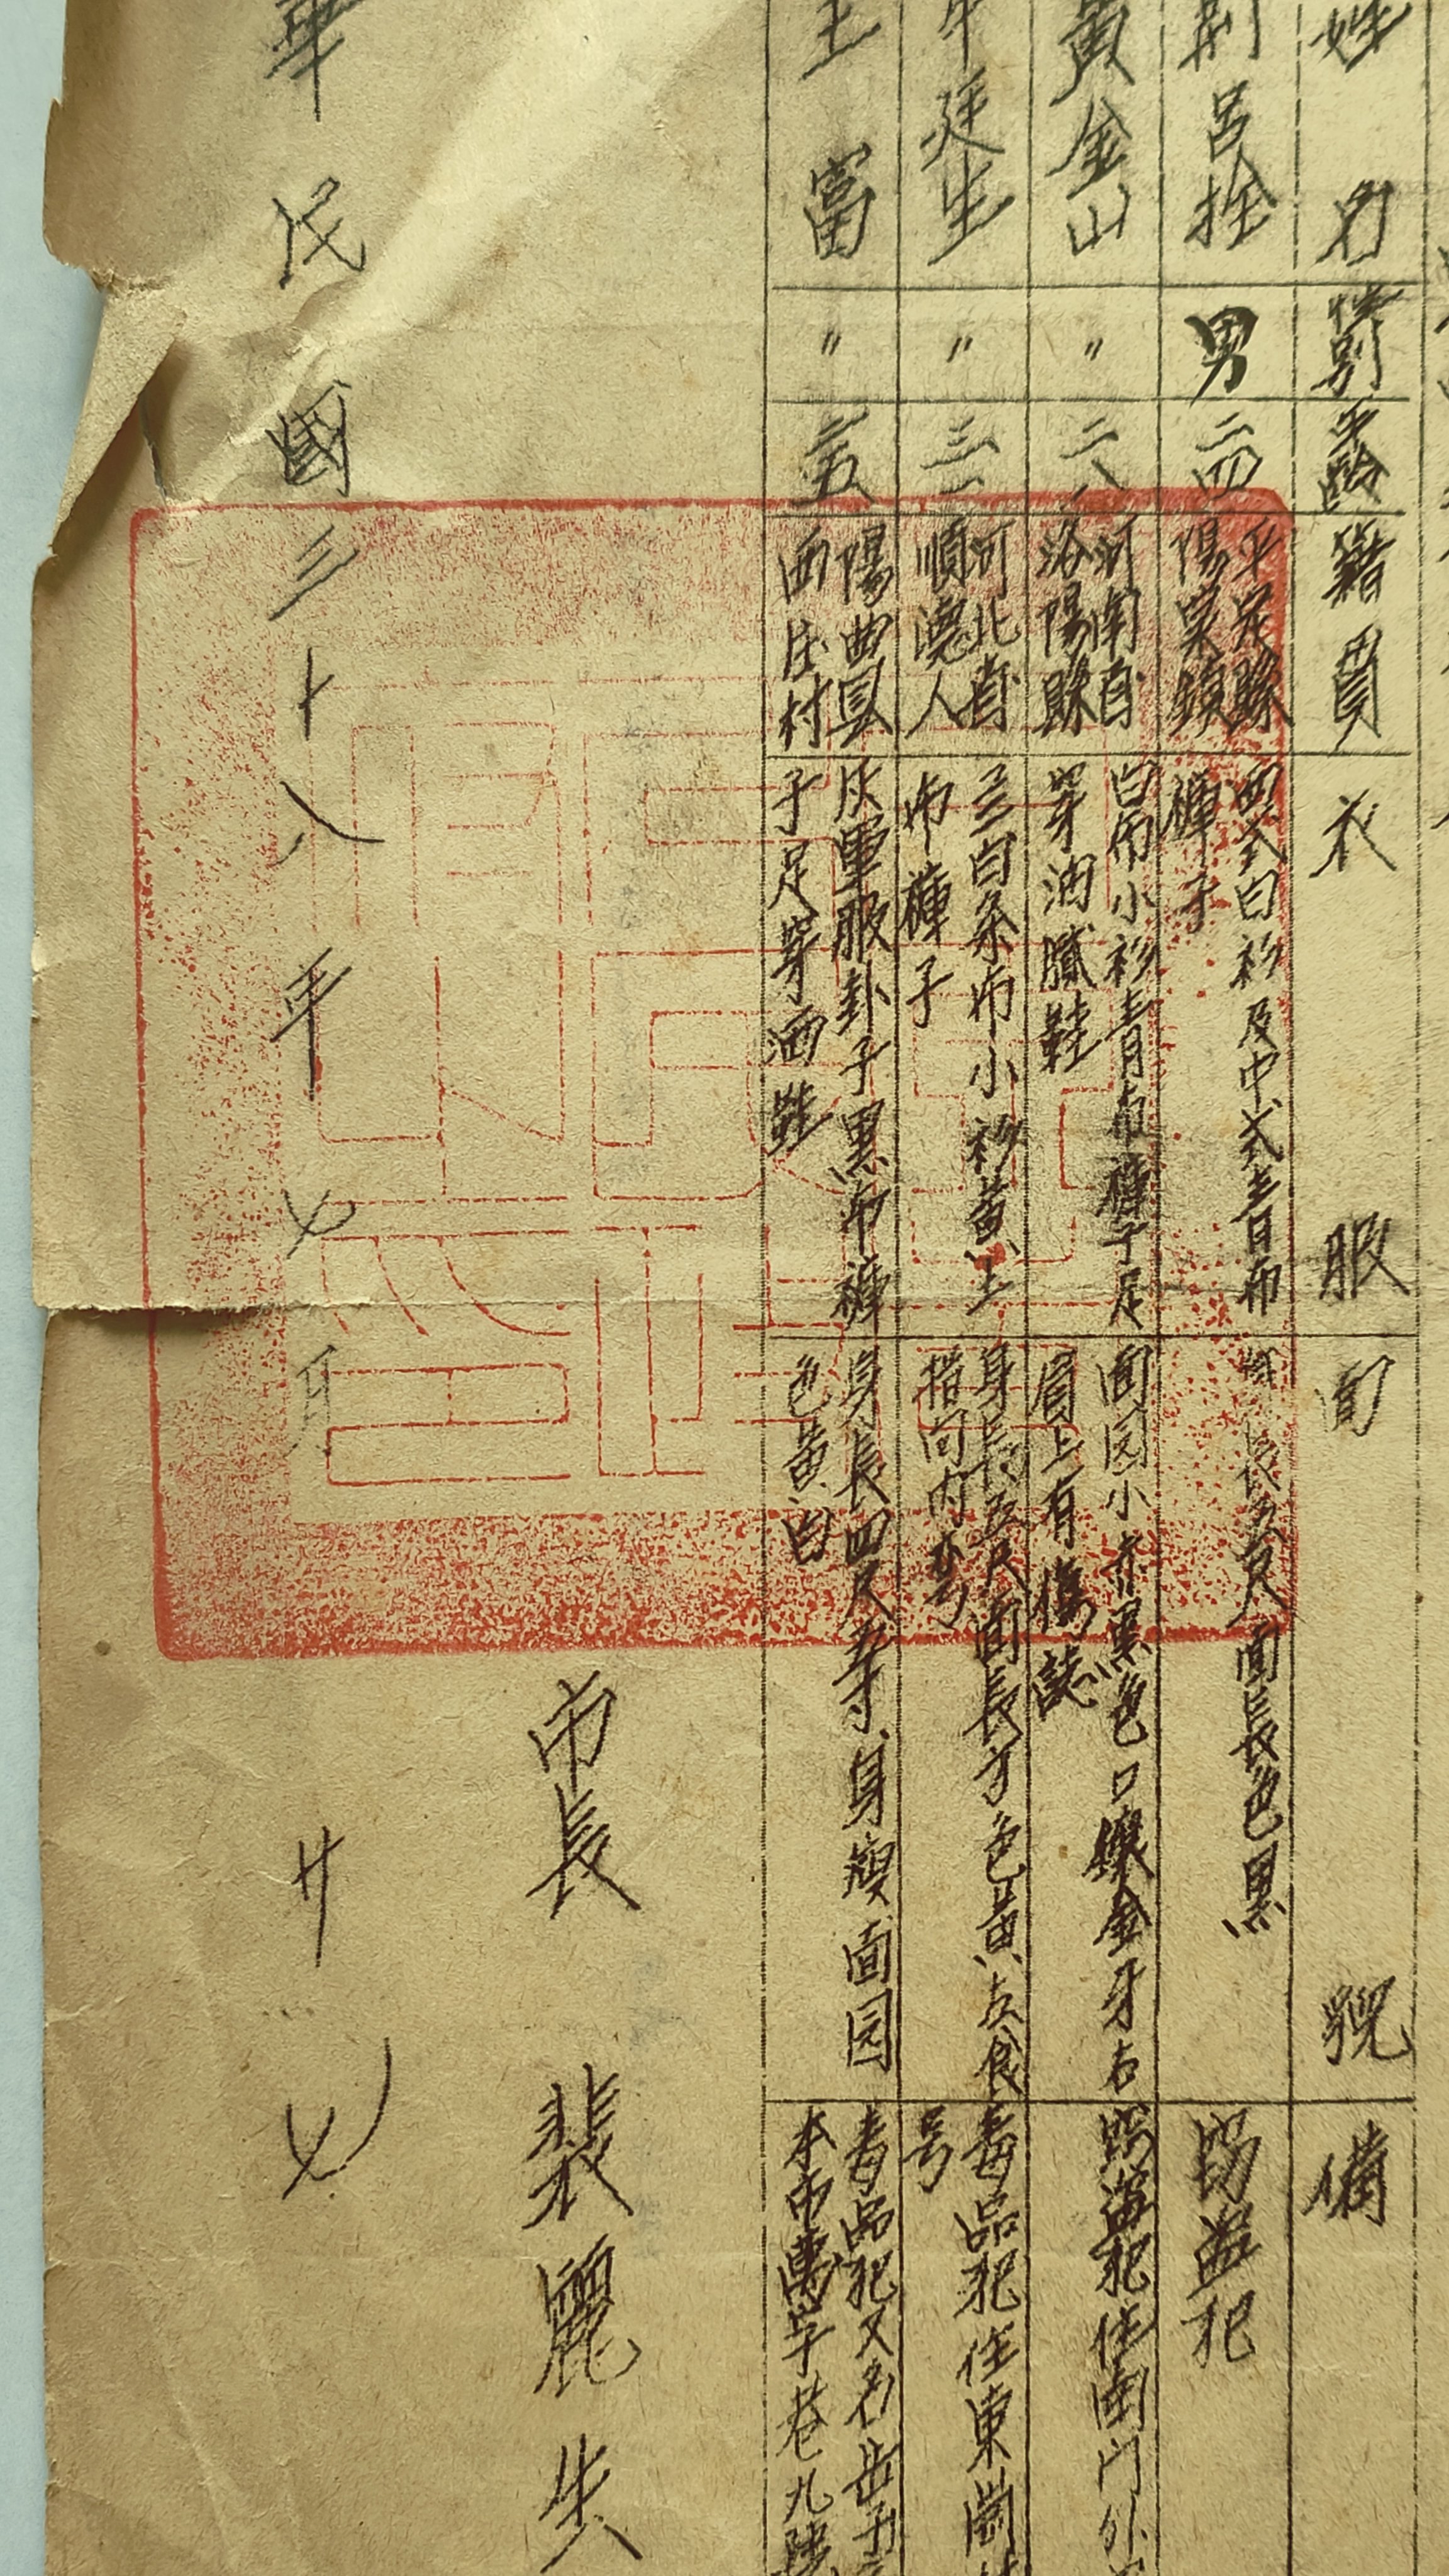 姓名 性别 年齡 籍貫 衣服 面貌 備
荆呂拴 男 二四 平定縣
陽泉鎮
西式白衫及中式青布
褲子
長五尺面長色黑
竊盜犯
黃金山 〃 二八 河南省
洛陽縣
白布小衫青布褲子足
穿油膩鞋
面园小赤黑色口鑲金牙右
眉上有傷誌
竊盜犯住南门外
廷生 〃 三一 河北省
順德人
白条布小衫黃土
布褲子
身長五尺面長方色黃左食
指向内弯
毒品犯住東崗
号
王富 〃 二五 陽曲县
西庄村
灰軍服卦子黑布褲
子足穿洒鞋
身長四尺 寸身瘦面园
色黃白
毒品犯又名岳子
本市萬字巷九
市長 裴麗生
華民國三十八年七月廿七